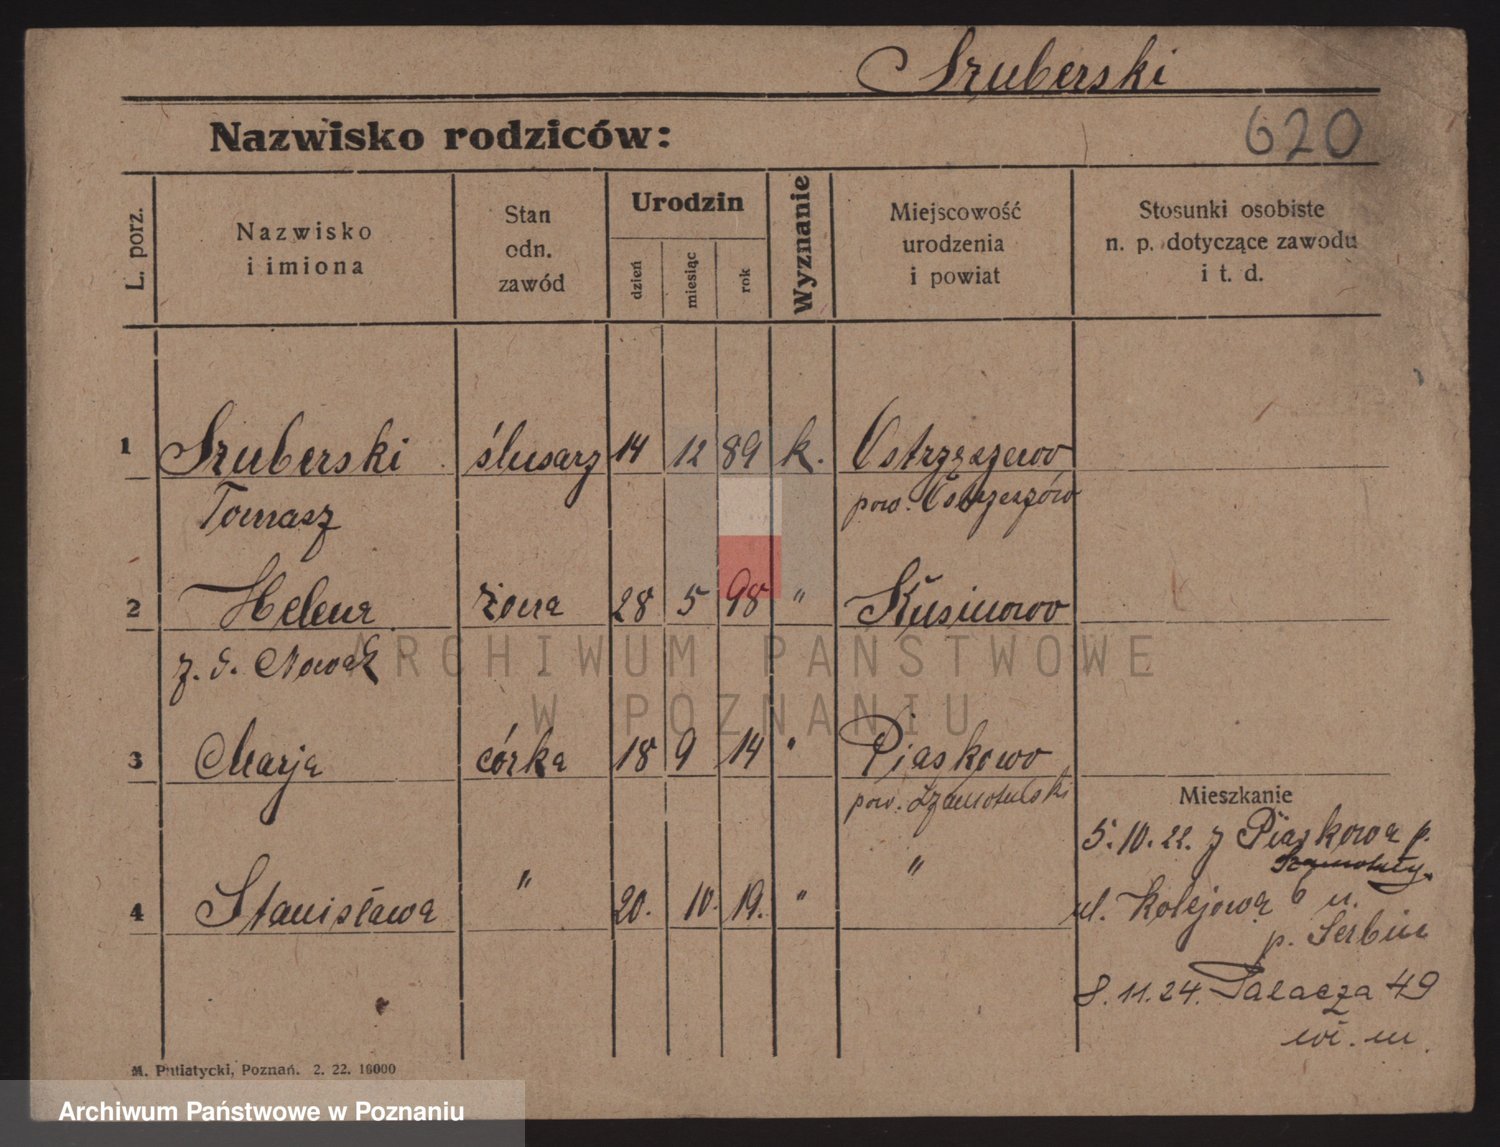 Szuberski
Nazwisko rodziców:
620
L. porz.
Nazwisko
i imiona
Stan
odn.
zawód
Urodzin
dzień
miesiąc
rok
Wyznanie
Miejscowość
urodzenia
i powiat
Stosunki osobiste
n. p. dotyczące zawodu
i t. d.
1 Szuberski ślusarz 14 12 89 k. Ostrzeszewo
Tomasz pow. Ostrzeszów
2 Helena żona 28 5 98 " Kusinowo
z. d. Nowak
3 Marja córka 18 9 14 " Piaskowo
pow. Szamotulski
Mieszkanie
5.10.22. z Piaskowa p.
Szamotuły.
4 Stanisława " 20. 10. 19. " "
ul. Kolejowa 6 u.
p. Serbin
8.11.24. Palacza 49
wł. m.
M. Putiatycki, Poznań. 2. 22. 10000
ARCHIWUM PAŃSTWOWE
W POZNANIU
Archiwum Państwowe w Poznaniu